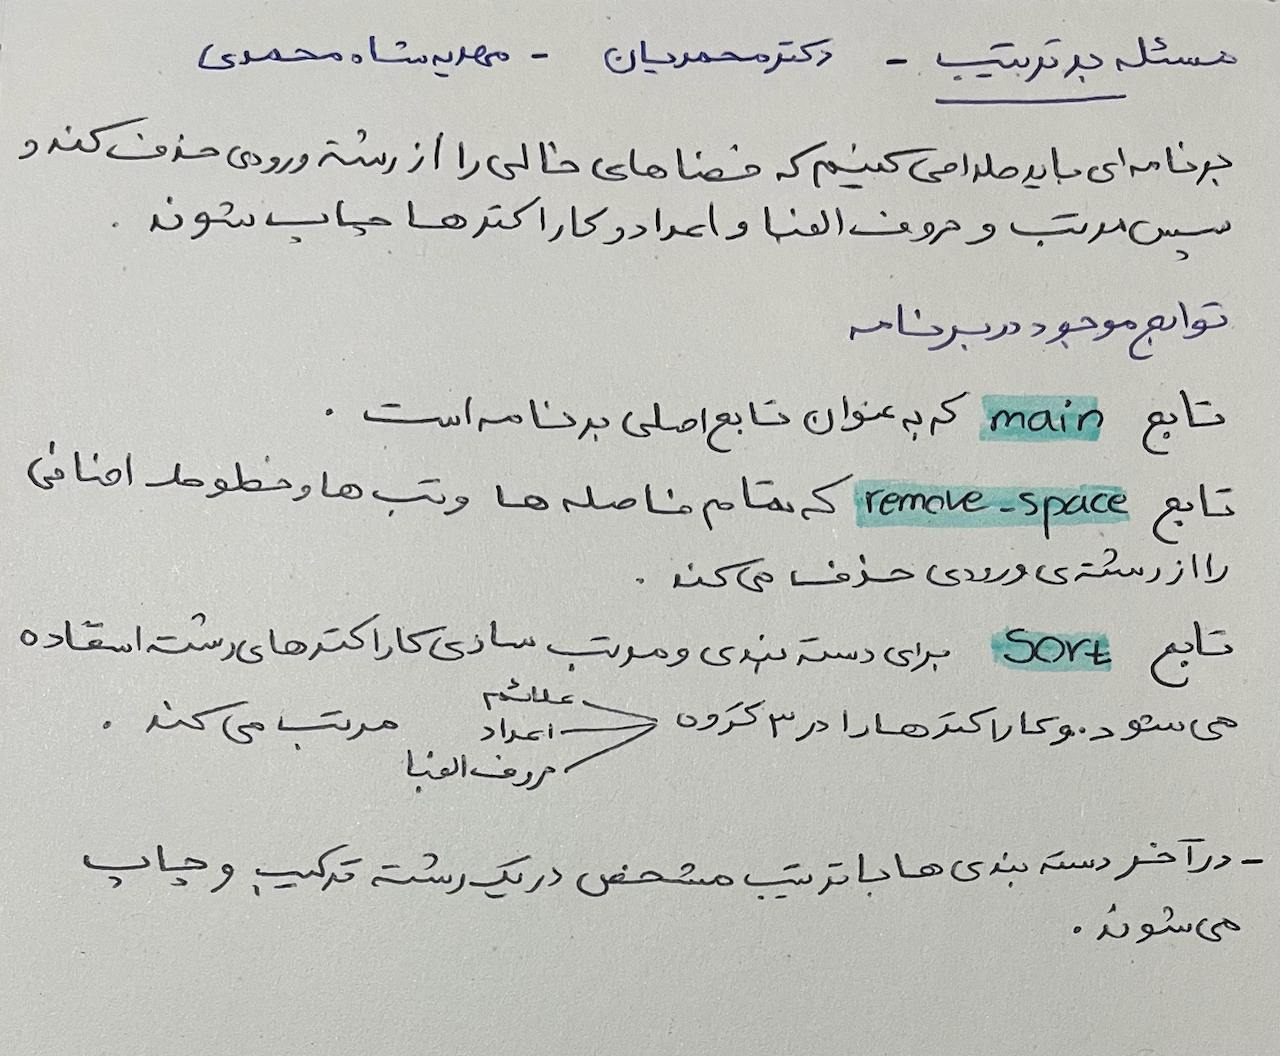 مسئله بد ترتیب - دکتر محمدیان - مهدیه شاه محمدی
برنامه ای باید طراحی کنیم که فضاهای خالی را از رشته ورودی حذف کند و
سپس مرتب و حروف الفبا و اعداد و کاراکترها چاپ شوند .
توابع موجود در برنامه
تابع main که به عنوان تابع اصلی برنامه است .
تابع remove_space که تمام فاصله ها و تب ها و خطوط اضافی
را از رشته ی ورودی حذف می کند .
تابع Sort برای دسته بندی و مرتب سازی کاراکترهای رشته استفاده
می شود . و کاراکترها را در ۳ گروه علائم اعداد حروف الفبا مرتب می کند .
- در آخر دسته بندی ها با ترتیب مشخص در یک رشته ترکیب و چاپ
می شوند .